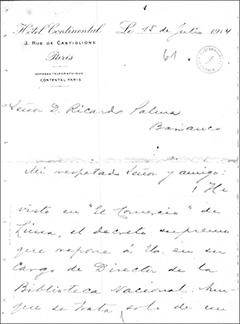 Hôtel Continental
3, Rue de Castiglione
Paris
Adresse Télégraphique
Contental Paris
Le 18 de Julio 1914
61
Señor D. Ricardo Palma
Barranco
Mi respetado Señor y amigo:
He
visto en "El Comercio" de
Lima, el decreto supremo
que repone á Ud. en su
cargo de Director de la
Biblioteca Nacional. Aun-
que se trata solo de un